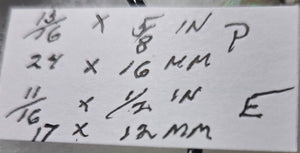 13/16 x 5/8 IN P
24 x 16 MM
11/16 x 1/2 IN E
17 x 12 MM